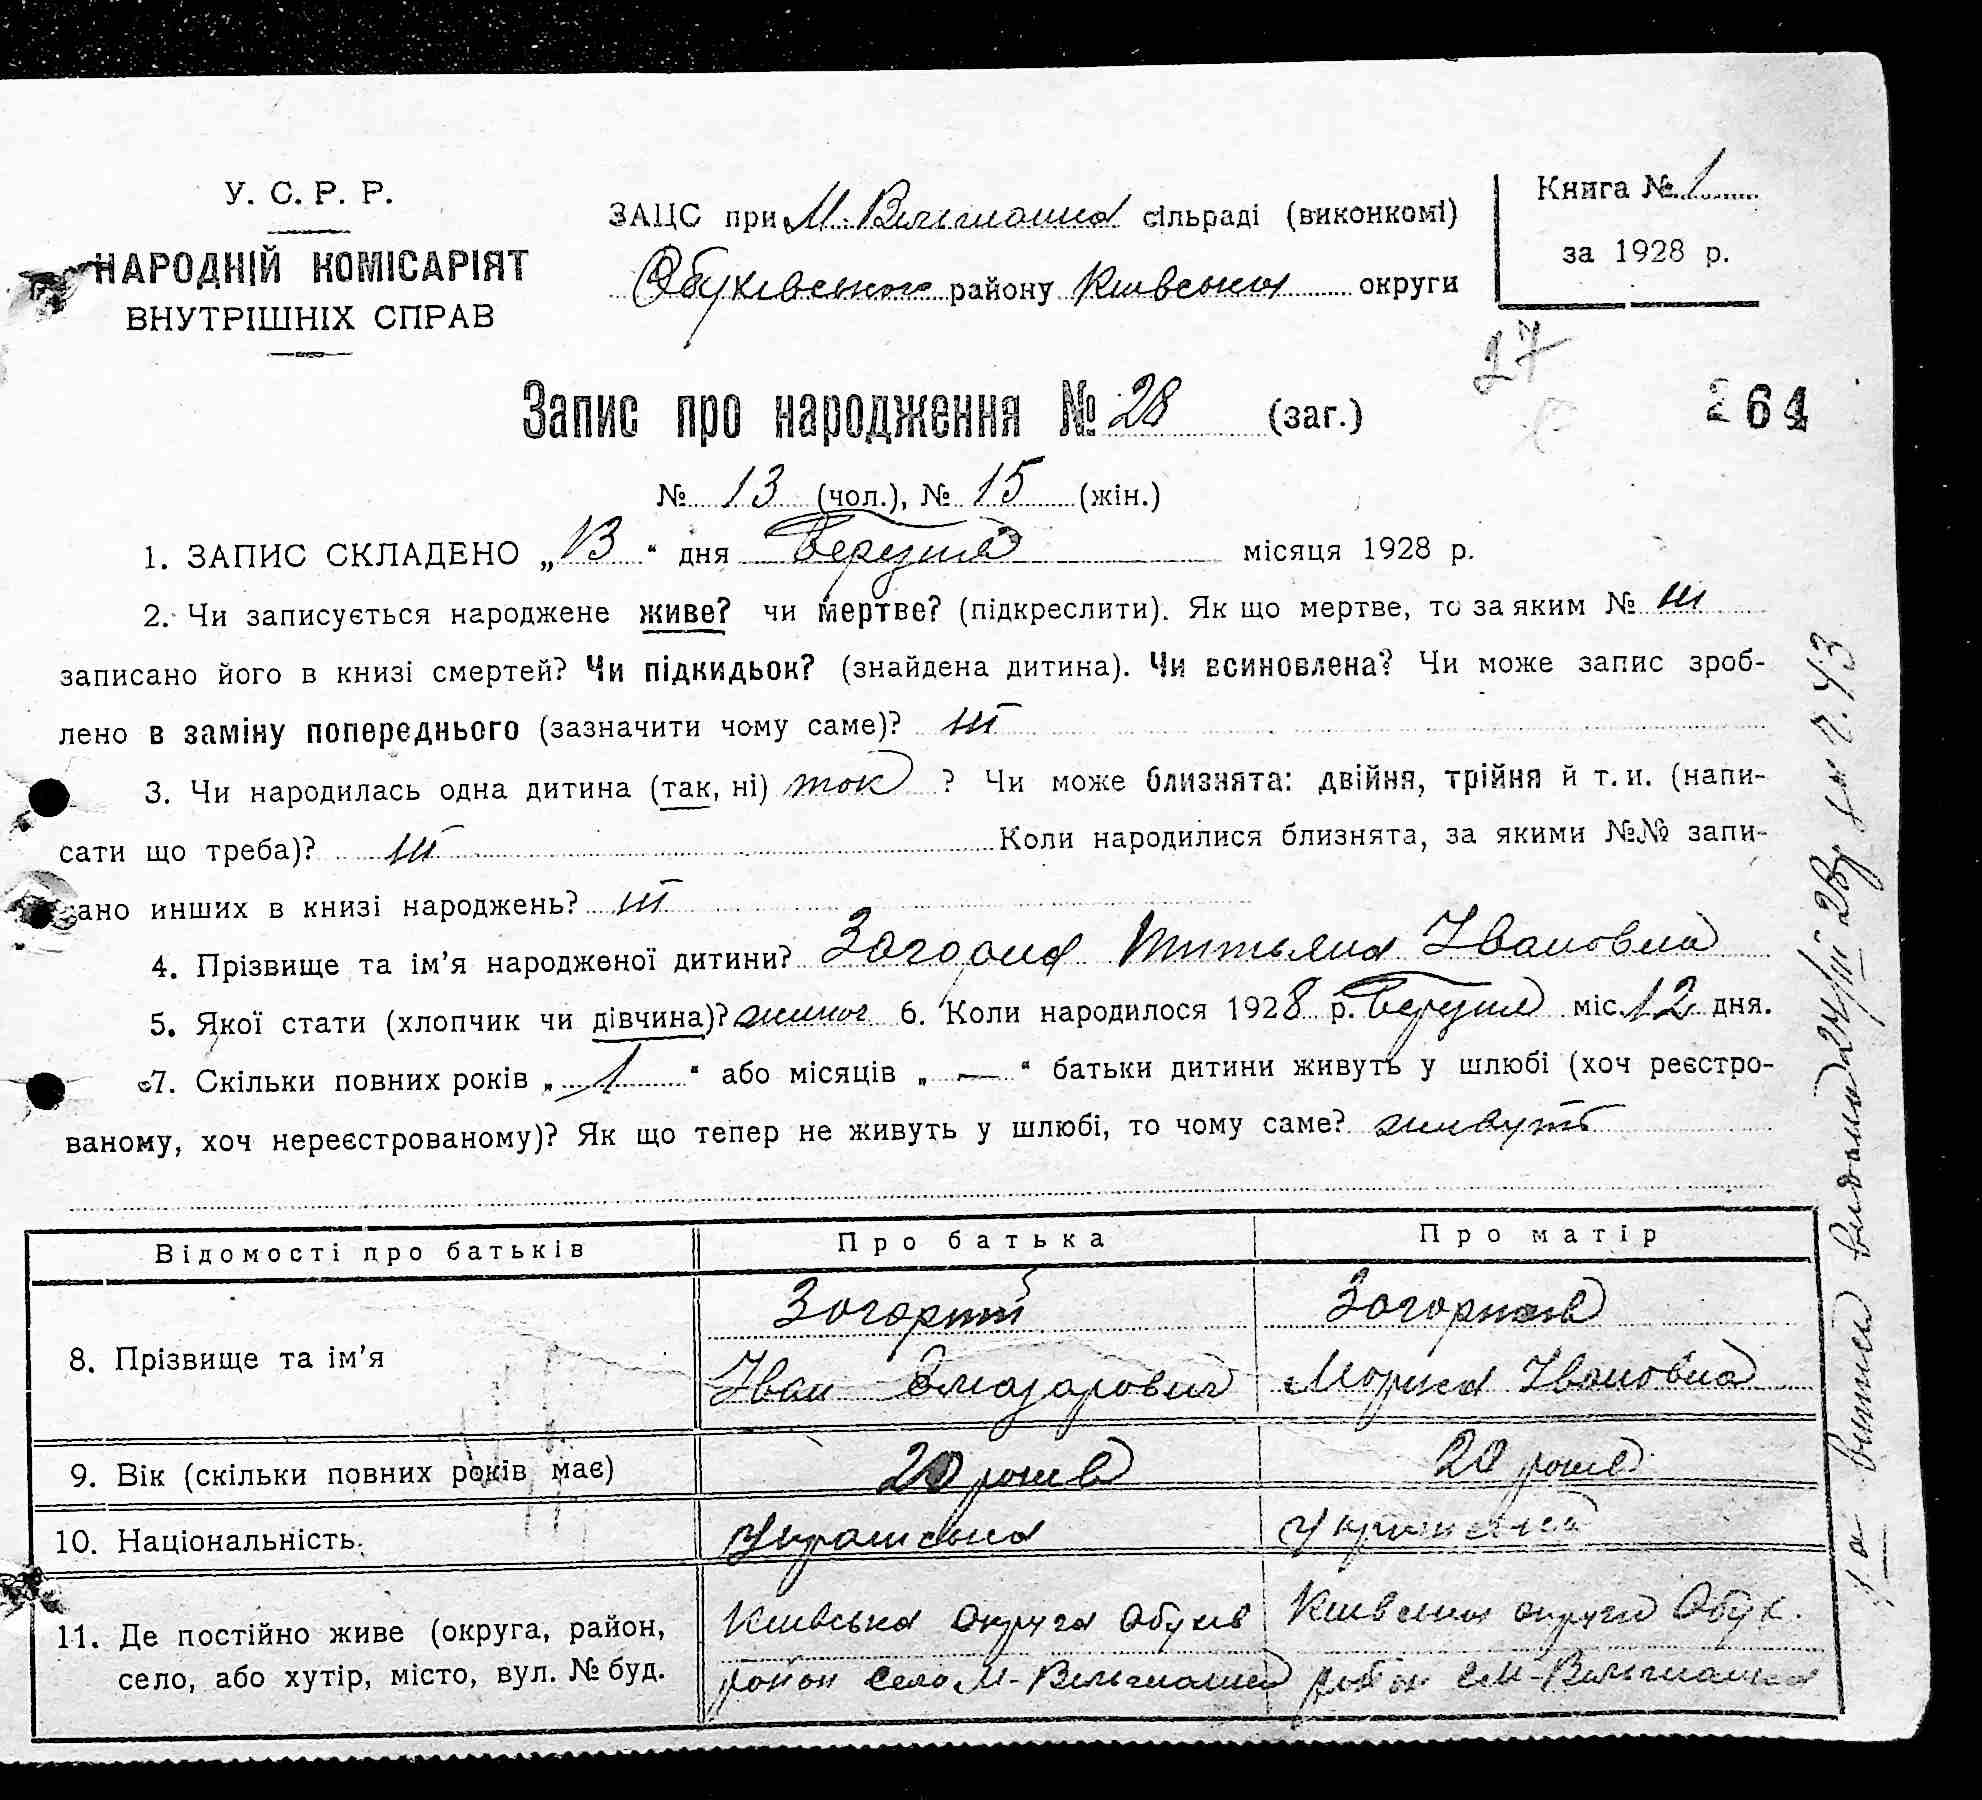 У. С. Р. Р.
НАРОДНІЙ КОМІСАРІЯТ
ВНУТРІШНІХ СПРАВ
ЗАЦС при М. Вільшанка сільраді (виконкомі)
Обухівський району Київської округи
Книга № 1
за 1928 р.
27
264
Запис про народження № 28 (заг.)
№ 13 (чол.), № 15 (жін.)
1. ЗАПИС СКЛАДЕНО „13“ дня березня місяця 1928 р.
2. Чи записується народжене живе? чи мертве? (підкреслити). Як що мертве, то за яким № ні
записано його в книзі смертей? Чи підкидьок? (знайдена дитина). Чи всиновлена? Чи може запис зроб-
лено в заміну попереднього (зазначити чому саме)? ні
3. Чи народилась одна дитина (так, ні) так ? Чи може близнята: двійня, трійня й т. и. (напи-
сати що треба)? ні Коли народилися близнята, за якими №№ запи-
сано инших в книзі народжень? ні
4. Прізвище та ім’я народженої дитини? Загорна Титьяна Івановна
5. Якої стати (хлопчик чи дівчина)? 6. Коли народилося 1928 р. березня міс. 12 дня.
7. Скільки повних років „1“ або місяців „—“ батьки дитини живуть у шлюбі (хоч реєстро-
ваному, хоч нереєстрованому)? Як що тепер не живуть у шлюбі, то чому саме? живуть
Відомості про батьків Про батька Про матір
8. Прізвище та ім’я
Іван Мария Івановна
9. Вік (скільки повних років має) 20 років 20 років
10. Національність. Українська Українська
11. Де постійно живе (округа, район, Київська округа Обухів Київська округа Обух.
село, або хутір, місто, вул. № буд. район село М-Вільшанка район с М-Вільшанка